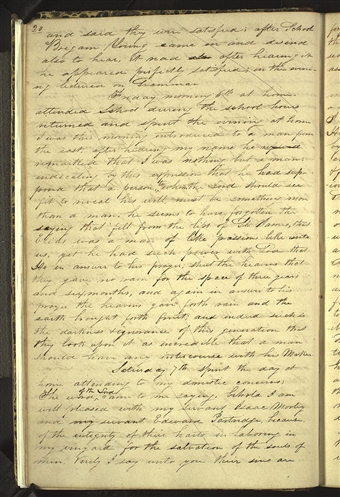 and said they were satisfied; after School
Brigam Young came in and desired
also to hear it read after hearing it
he appeared perfectly satisfied; in the even
ing lectured on Grammar.
Friday morning 6th at home.
attended School during the school hours
returned and spent the evening at home
I was this morning introduced to a man from
the east, after hearing my name he
remarked that I was nothing but a man:
indicating by this expression that he had sup-
posed that a person to whom the Lord should see
fit to reveal his will, must be something more
than a man, he seems to have forgotten the
saying that fell from the lips of St. James, that
Elias was a man of like passions like unto
us, yet he had such power with God that
He in answer to his prayer, shut the heavens that
they gave no rain for the space of three years
and six months, and again in answer to his
prayer the heavens gave forth rain and the
earth brought forth fruit; and indeed such is
the darkness & ignorance of this generation that
they look upon it as incredible that a man
should have any intercourse with his Maker.
Saturday 7th spent the day at
home attending to my domestic concerns;
The word of the Lord came to me saying, behold I am
well pleased with my servant Isaac Morley
and my servant Edward Partridge, because
of the integrity of their harts in laboring in
my vinyard for the salvation of the souls of
men, Verily I say unto you their sins are